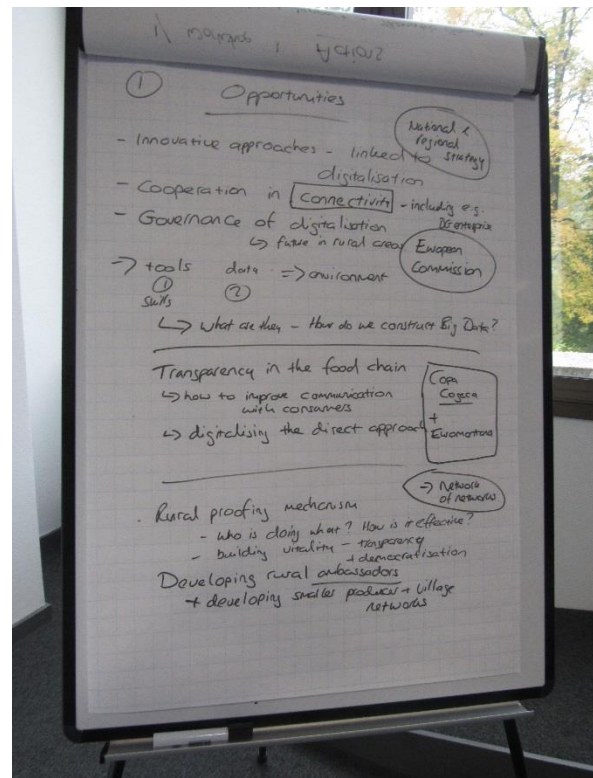 ①
Opportunities
National &
regional
strategy
- Innovative approaches - linked to
digitalisation
- Cooperation in connectivity - including e.g.
DG enterprise
- Governance of digitalisation
↳ future in rural areas
European
Commission
-> tools data => environment
① ②
skills
↳ What are they - How do we construct Big Data?
Transparency in the food chain
↳ how to improve communication
with consumers
↳ digitalising the direct approach
Copa
Cogeca
+
Euromontana
-> Network
of networks
Rural proofing mechanism
- who is doing what? How is it effective?
- building vitality - transparency
+ democratisation
Developing rural ambassadors
+ developing smaller producer + village
networks